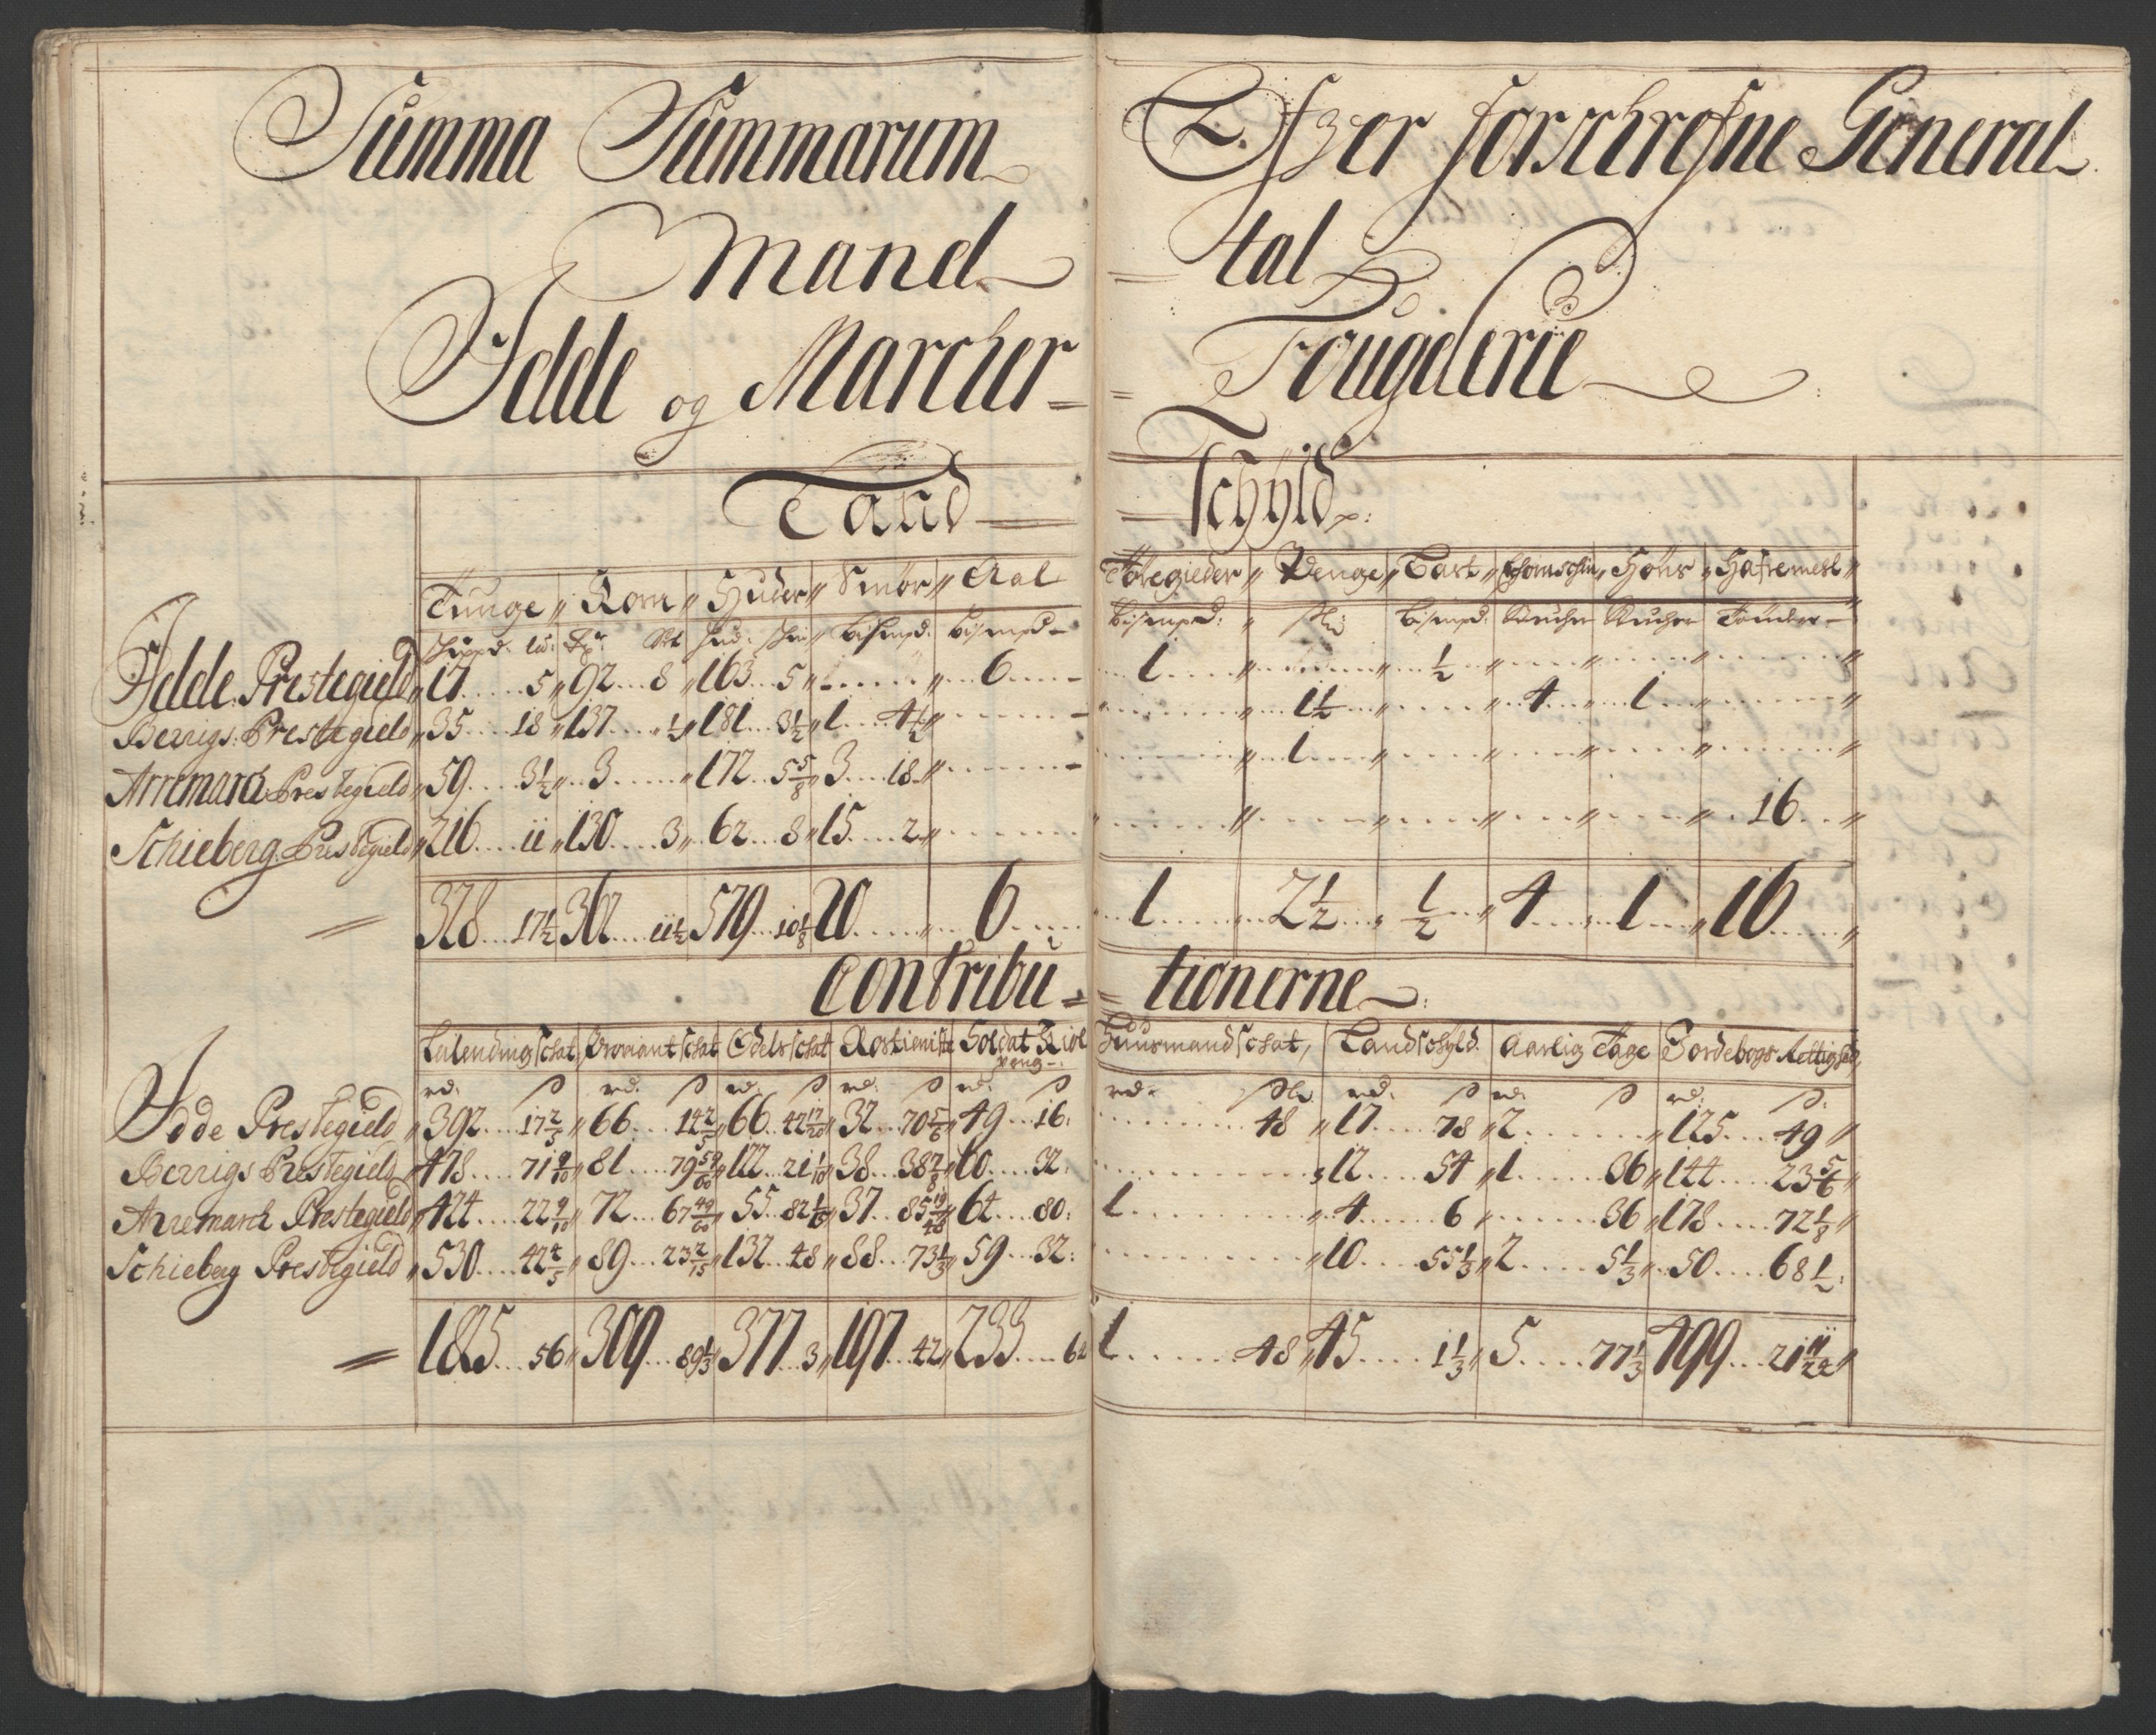 Summa Summarum Efter forschrefne General
Mand = tal
Idde og Marcher = Fougederie
Land = schyld
Tunge Korn Huder Smör Aal Töregieder Penge Tørt Høns Hafremehl
Schippd. lb: Hud: Schin Bismpd. Bismpd Bismpd: Bismpd. Tønder
Idde Prestegield 17 5 92 8 163 5 6 1 1/2
Berrigs Prestegield 35 18 137 1/2 181 3 1/2 1 4 1/2 1 1/2 4 1
Arremarch Prestegield 59 3 1/2 3 172 5 5/8 3 18 1
Schieberg Prestegield 216 11 130 3 62 8 15 2 16
378 17 1/2 362 11 1/2 579 10 1/8 20 6 1 2 1/2 1/2 4 1 16
Contribu = tionerne
Leilendings schat, Proviant schat Odels schat Rostieniste Soldat Kiol Huusmand schat, Landschyld. Aarlig Tage Jordebogs Rettighed
peng
rd. s rd. s rd. s rd. s rd. s rd. rd. s rd. s rd. s
Idde Prestegield 392 17 2/5 66 14 2/5 66 42 17/20 32 70 5/6 49 16 48 17 78 2 125 49
Berrigs Prestegield 478 71 9/10 81 79 59/60 122 21 1/10 38 38 7/8 60 32 12 54 1 36 144 23 5/6
Arremarch Prestegield 424 22 9/10 72 67 49/60 55 82 37 85 19/48 64 80 1 4 6 36 178 72 1/8
Schieberg Prestegield 530 42 4/5 89 23 2/15 132 48 88 73 1/3 59 32 10 55 1/3 2 5 1/3 50 68 1/2
1825 56 309 89 1/3 377 3 197 42 233 64 1 48 45 1 1/3 5 77 1/3 499 21 11/24